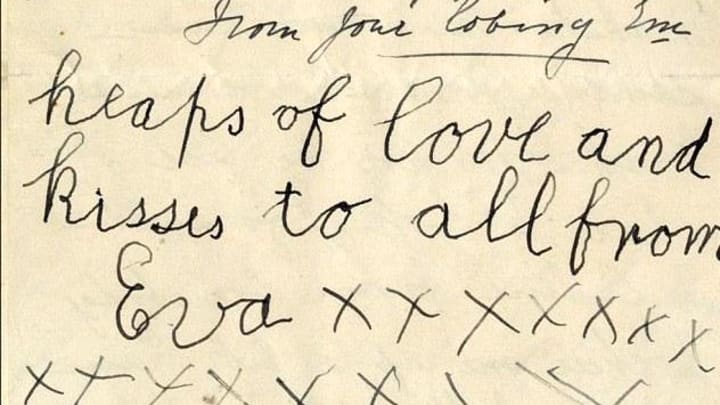 From your loving Em
heaps of love and
kisses to all from
Eva x x x x x x x
x x x x x x x x